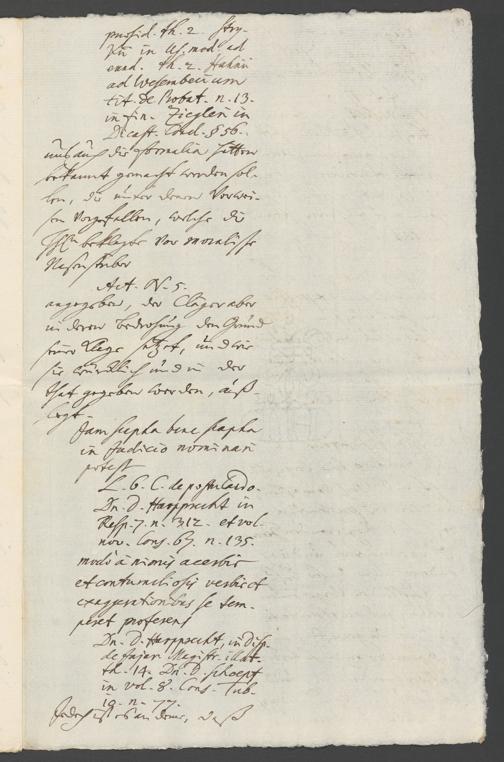 præsid. th. 2. Stry-
kii in Us. mod. ad
eund. th. 2. Hahnii
ad Wesembecium
tit. de Probat. n. 13.
in fin. Ziegleri in
Dicast. Concl. § 56.
und auch die formalia hätten
bekannt gemacht werden sol-
len, die unter denen Vorwei-
sen vorgefallen, welche die
beklagte vor moralische
Nasenstüber
Act. N. 5.
angegeben, der Cläger aber
in deren bedrohung den Grund
seiner Klage setzet, und wie
sie würcklich und in der
That gegeben worden, auß
legt.
Nam scapha bene scapha
in Judicio nominari
potest
L. 6. C. de postulando.
Dn. D. Harpprecht in
Resp. 7. n. 312. et vol.
nov. Cons. 67. n. 135.
modo à nimis acerbis
et contumeliosis verbis et
exaggerationibus se tem-
peret proferens
Dn. D. Harpprecht, in disp.
de injur. Magistr. illat.
th. 14. Dn. D. Schoepf
in vol. 8. Cons. Tub.
19. n. 77.
Jedoch ist es an deme, daß